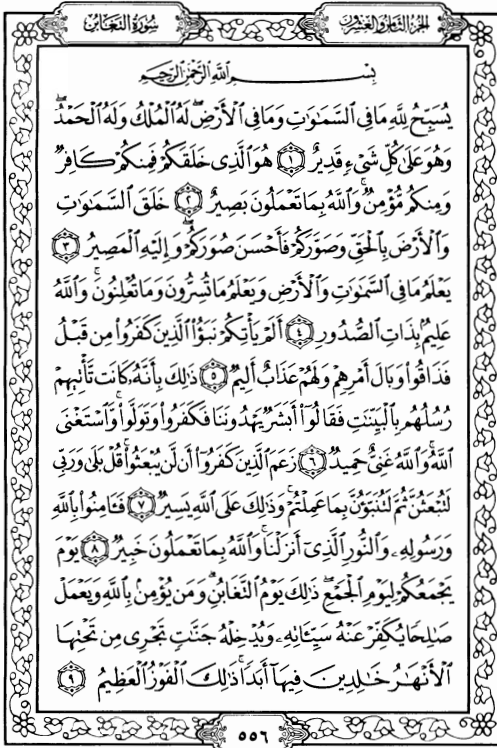 سُورَةُ التَّغَابُنِ
الجُزْءُ الثَّامِنُ وَالعِشْرُونَ
بِسْمِ اللَّهِ الرَّحْمَٰنِ الرَّحِيمِ
يُسَبِّحُ لِلَّهِ مَا فِي السَّمَٰوَٰتِ وَمَا فِي الْأَرْضِۖ لَهُ الْمُلْكُ وَلَهُ الْحَمْدُۖ
وَهُوَ عَلَىٰ كُلِّ شَيْءٍ قَدِيرٌ ١ هُوَ الَّذِي خَلَقَكُمْ فَمِنكُمْ كَافِرٌ
وَمِنكُم مُّؤْمِنٌۚ وَاللَّهُ بِمَا تَعْمَلُونَ بَصِيرٌ ٢ خَلَقَ السَّمَٰوَٰتِ
وَالْأَرْضَ بِالْحَقِّ وَصَوَّرَكُمْ فَأَحْسَنَ صُوَرَكُمْۖ وَإِلَيْهِ الْمَصِيرُ ٣
يَعْلَمُ مَا فِي السَّمَٰوَٰتِ وَالْأَرْضِ وَيَعْلَمُ مَا تُسِرُّونَ وَمَا تُعْلِنُونَۚ وَاللَّهُ
عَلِيمٌۢ بِذَاتِ الصُّدُورِ ٤ أَلَمْ يَأْتِكُمْ نَبَؤُا۟ الَّذِينَ كَفَرُوا۟ مِن قَبْلُ
فَذَاقُوا۟ وَبَالَ أَمْرِهِمْ وَلَهُمْ عَذَابٌ أَلِيمٌ ٥ ذَٰلِكَ بِأَنَّهُۥ كَانَت تَّأْتِيهِمْ
رُسُلُهُم بِالْبَيِّنَٰتِ فَقَالُوٓا۟ أَبَشَرٌ يَهْدُونَنَا فَكَفَرُوا۟ وَتَوَلَّوا۟ۚ وَّاسْتَغْنَى
اللَّهُۚ وَاللَّهُ غَنِيٌّ حَمِيدٌ ٦ زَعَمَ الَّذِينَ كَفَرُوٓا۟ أَن لَّن يُبْعَثُوا۟ۚ قُلْ بَلَىٰ وَرَبِّي
لَتُبْعَثُنَّ ثُمَّ لَتُنَبَّؤُنَّ بِمَا عَمِلْتُمْۚ وَذَٰلِكَ عَلَى اللَّهِ يَسِيرٌ ٧ فَـَٔامِنُوا۟ بِاللَّهِ
وَرَسُولِهِۦ وَالنُّورِ الَّذِيٓ أَنزَلْنَاۚ وَاللَّهُ بِمَا تَعْمَلُونَ خَبِيرٌ ٨ يَوْمَ
يَجْمَعُكُمْ لِيَوْمِ الْجَمْعِۖ ذَٰلِكَ يَوْمُ التَّغَابُنِۗ وَمَن يُؤْمِنۢ بِاللَّهِ وَيَعْمَلْ
صَٰلِحًا يُكَفِّرْ عَنْهُ سَيِّـَٔاتِهِۦ وَيُدْخِلْهُ جَنَّٰتٍ تَجْرِي مِن تَحْتِهَا
الْأَنْهَٰرُ خَٰلِدِينَ فِيهَآ أَبَدًاۚ ذَٰلِكَ الْفَوْزُ الْعَظِيمُ ٩
٥٥٦